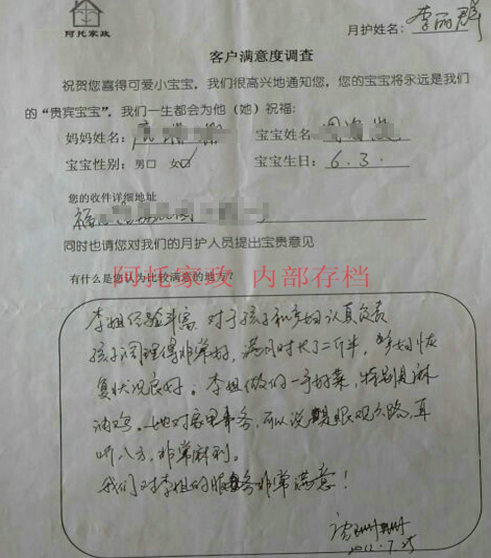 阿托家政
月护姓名：李丽群
客户满意度调查
祝贺您喜得可爱小宝宝，我们很高兴地通知您，您的宝宝将永远是我们
的“贵宾宝宝”，我们一生都会为他（她）祝福：
妈妈姓名：
宝宝姓名
宝宝性别：男口 女口
宝宝生日：6.3.
您的收件详细地址
福
同时也请您对我们的月护人员提出宝贵意见
阿托家政 内部存档
有什么是您认为比较满意的地方？
李姐经验丰富，对于孩子和产妇认真负责
孩子调理得非常好，满月时长了二斤半，产妇恢
复状况良好。李姐做的一手好菜，特别是麻
油鸡。她对家里事务，可以说是眼观六路，耳
听八方，非常麻利。
我们对李姐的服务非常满意！
2011.7.25